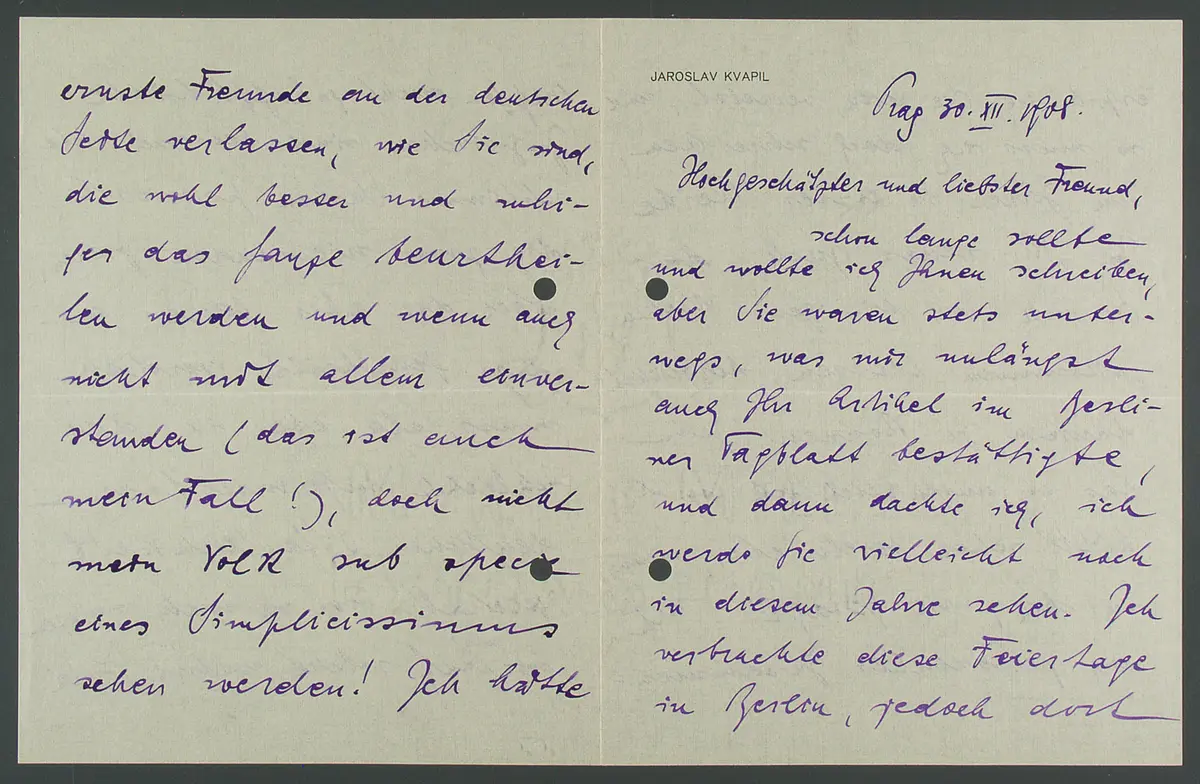 ernste Freunde an der deutschen
Seite verlassen, wie Sie sind,
die wohl besser und ruhi-
ger das Ganze beurthei-
len werden und wenn auch
nicht mit allem einver-
standen (das ist auch
mein Fall!), doch nicht
mein Volk sub specie
eines Simplicissimus
sehen werden! Ich hätte
JAROSLAV KVAPIL
Prag 30. XII. 1908.
Hochgeschätzter und liebster Freund,
schon lange sollte
und wollte ich Ihnen schreiben,
aber Sie waren stets unter-
wegs, was mir unlängst
auch Ihr Artikel im Berli-
ner Tagblatt bestättigte,
und dann dachte ich, ich
werde Sie vielleicht noch
in diesem Jahre sehen. Ich
verbrachte diese Feiertage
in Berlin, jedoch dort